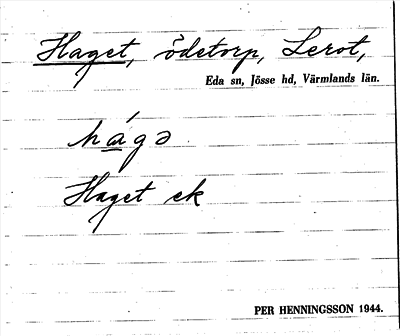 Haget, ödetorp, Lerot,
Eda sn, Jösse hd, Värmlands län.
há̱gə
Haget ek
PER HENNINGSSON 1944.